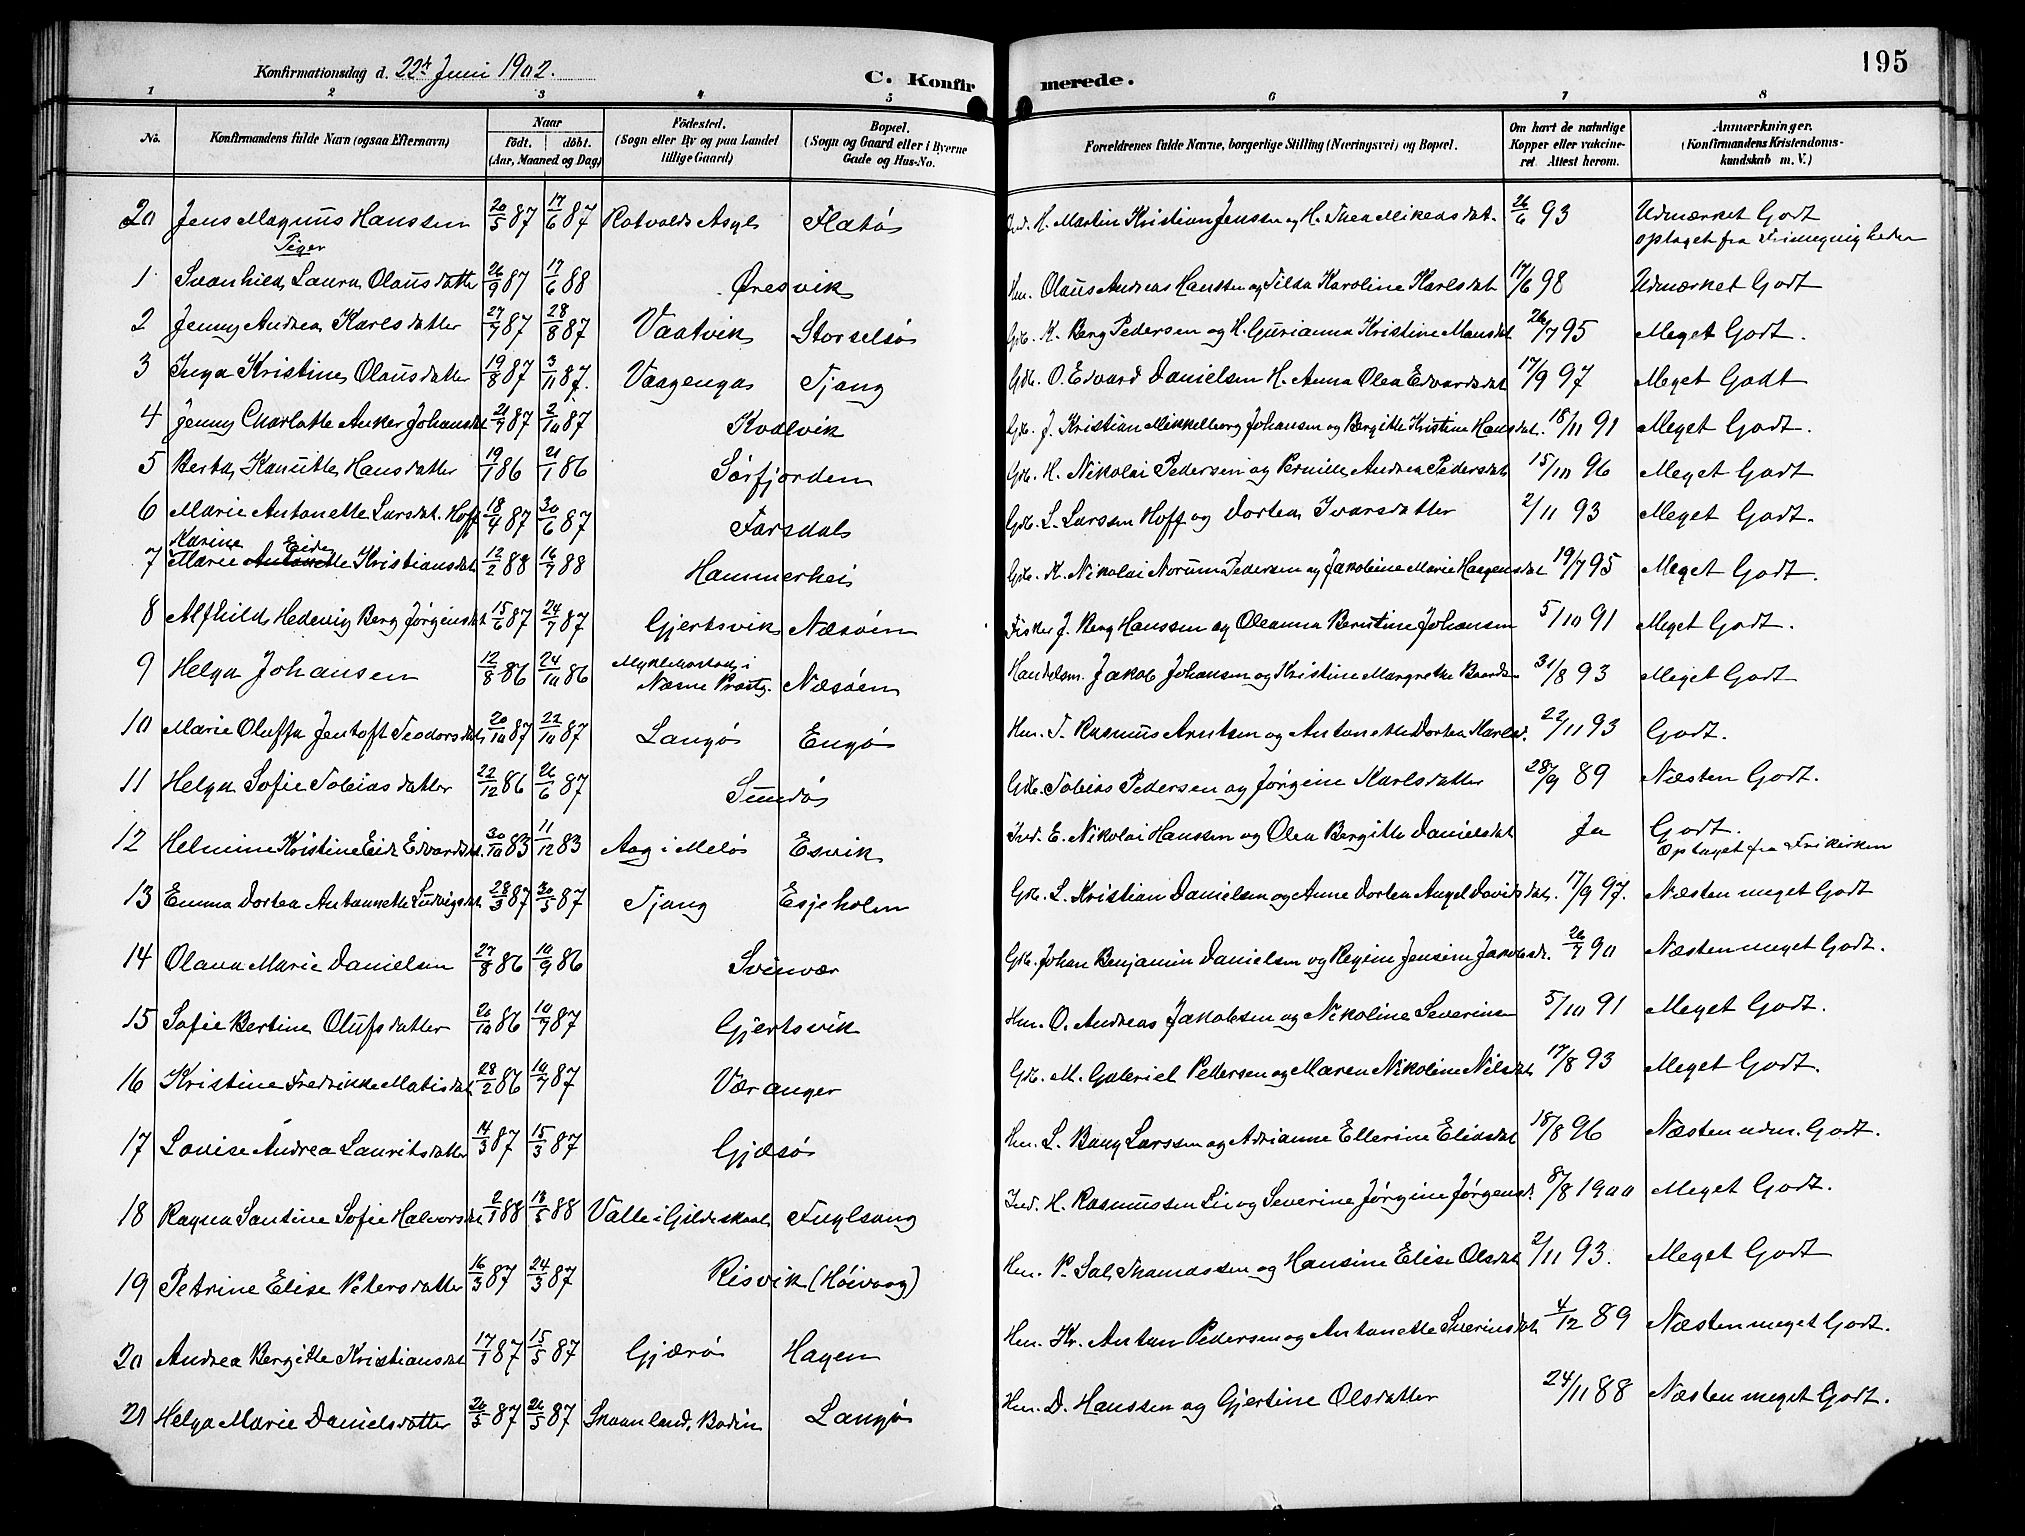 195
Konfirmationsdag d. 22de Juni 1902.
C. Konfirmerede.
1 2 3 4 5 6 7 8
No. Konfirmandens fulde Navn (ogsaa Efternavn) Naar födt. döbt. (Aar, Maaned og Dag) Födested. (Sogn eller By og paa Landet tillige Gaard) Bopæl. (Sogn og Gaard eller i Byerne Gade og Hus-No. Forældrenes fulde Navne, borgerlige Stilling (Næringsvei) og Bopæl. Om havt de naturlige Kopper eller vakcineret. Attest herom. Anmærkninger. (Konfirmandens Kristendomskundskab m. V.)
20 Jens Magnus Hanssen 20/5 87 17/6 87 Rotvolds Asyl Flatø Ind. H. Martin Kristian Jenssen og H. Thea Mikeasdat. 26/6 93 Udmærket Godt
optaget fra Frimenigheden
Piger
1 Svanhild Laura Olausdatter 26/9 87 17/6 88 Øresvik Hm. Olaus Andreas Hanssen og Tilda Karoline Karlsdat 17/6 98 Udmærket Godt
2 Jenny Andrea Karlsdatter 27/7 87 28/8 87 Vaatvik Storselsø Gdb. K. Berg Pedersen og H. Gurianna Kristine Mansdat 26/7 95 Meget Godt.
3 Inga Kristine Olausdatter 19/8 87 3/11 87. Vaagenga Tjang Gdb. O. Edvard Danielsen H. Anna Olea Edvardsdat 17/9 97 Meget Godt
4 Jenny Charlotte Anker Johansdat 21/7 87 2/10 87 Kvalvik Gdb. J. Kristian Mikkelborg Johansen og Bergitte Kristine Hansdat. 18/11 91 Meget Godt.
5 Berta Kanutte Hansdatter 19/1 86 21/1 86 Sørfjorden Gdb. H. Nikolai Pedersen og Pernille Andrea Pedersdat 15/10 96 Meget Godt
6 Marie Antonette Larsdat. Hoff 18/4 87 30/6 87 Farsdal Gdb. L. Larssen Hoff og Dortea Ivarsdatter 2/11 93 Meget Godt.
Karine Eide
7 Marie Antonette Kristiansdat 12/2 88 16/7 88 Hammerhei Gdb. K. Nikolai Norum Pedersen og Jakobine Marie Haagensdat 19/7 95 Meget Godt.
8 Alfhild Hedevig Berg Jørgensdat 15/6 87 24/7 87 Gjertsvik Næsøen Fisker J. Berg Hanssen og Oleanna Berntine Johansen 5/10 91 Meget Godt.
9 Helga Johansen 12/8 86 24/10 86 Myklebostad i Næsne Præstg. Næsøen Handelsm. Jakob Johansen og Kristine Margrethe 31/8 93 Meget Godt
10 Marie Oluffa Jentoft Teodorsdat 20/10 87 22/10 87 Langø Engø Hm. T. Rasmus Arntsen og Antonette Dortea Karlsd. 22/11 93 Godt.
11 Helga Sofie Tobiasdatter 22/12 86 26/6 87 Sundø Gdb. Tobias Pedersen og Jørgine Karlsdatter 28/9 89 Næsten Godt.
12 Helmine Kristine Eide Edvardsdat. 30/10 83 11/12 83 Aag i Melø Esvik Ind. E. Nikolai Hanssen og Olea Bergitte Danielsdat Ja Godt.
Optaget fra Frikirken
13 Emma Dortea Antonette Ludvigsdat. 28/3 87 30/5 87 Tjang Esjeholm Gdb. L. Kristian Danielsen og Anne Dortea Angel Davidsdat. 17/9 97. Næsten meget Godt
14 Olava Marie Danielsen 27/8 86 10/9 86 Svinvær Gdb. Johan Benjamin Danielsen og Regine Jensine Jakobsdt. 26/7 90 Næsten meget Godt.
15 Sofie Bertine Olufsdatter 20/10 86 10/7 87 Gjertsvik Hm. O. Andreas Jakobsen og Nikoline Severine 5/10 91 Meget Godt.
16 Kristine Fredrikke Matisdat 28/2 86 10/7 87 Væranger Gdb. M. Gabriel Pedersen og Maren Nikoline Nilsdat 17/8 93 Meget Godt.
17 Lovise Andrea Lauritsdatter 14/3 87 15/3 87 Gjæsø Hm. L. Bang Larssen og Adrianne Ellerine Eliasdat 18/8 96 Næsten udm. Godt.
18 Ragna Santine Sofie Halvorsdat 2/1 88 13/5 88 Valle i Gildeskaal Fuglsang Ind. H. Rasmussen Li og Severine Jørgine Jørgensd. 8/8 1900 Meget Godt.
19 Petrine Elise Petersdatter 16/3 87 24/3 87 Risvik (Høivaag) Hm. P. Sal. Thomassen og Hansine Elise Olsdat 2/11 93. Meget Godt
20 Andrea Bergitte Kristiansdat 17/1 87 15/5 87 Gjærø Hagen Hm. Kr. Anton Pedersen og Antonette Sverinsdat 4/12 89 Næsten meget Godt.
21 Helga Marie Danielsdatter 20/5 87 26/5 87 Skaanland, Bodin Langø Hm. D. Hanssen og Gjertine Olsdatter 24/11 88 Næsten meget Godt.